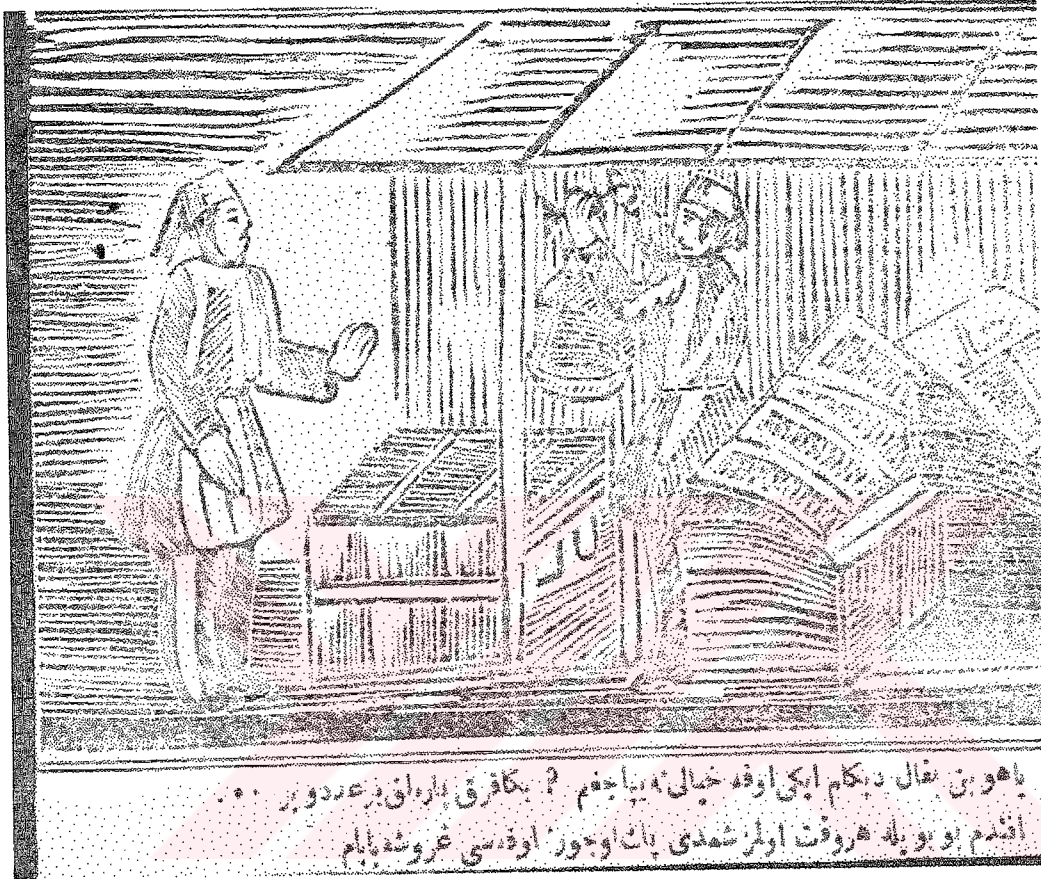 ياهو بن بقال دیکلم ایکی اوقه خیالی نه یپاجغم ؟ بکا قرق پاره‌لق بر عدد ویر ...
افندم بو بویله هروقت اولمز شمدی پك اوجوز اوقه‌سی غروشه بابام